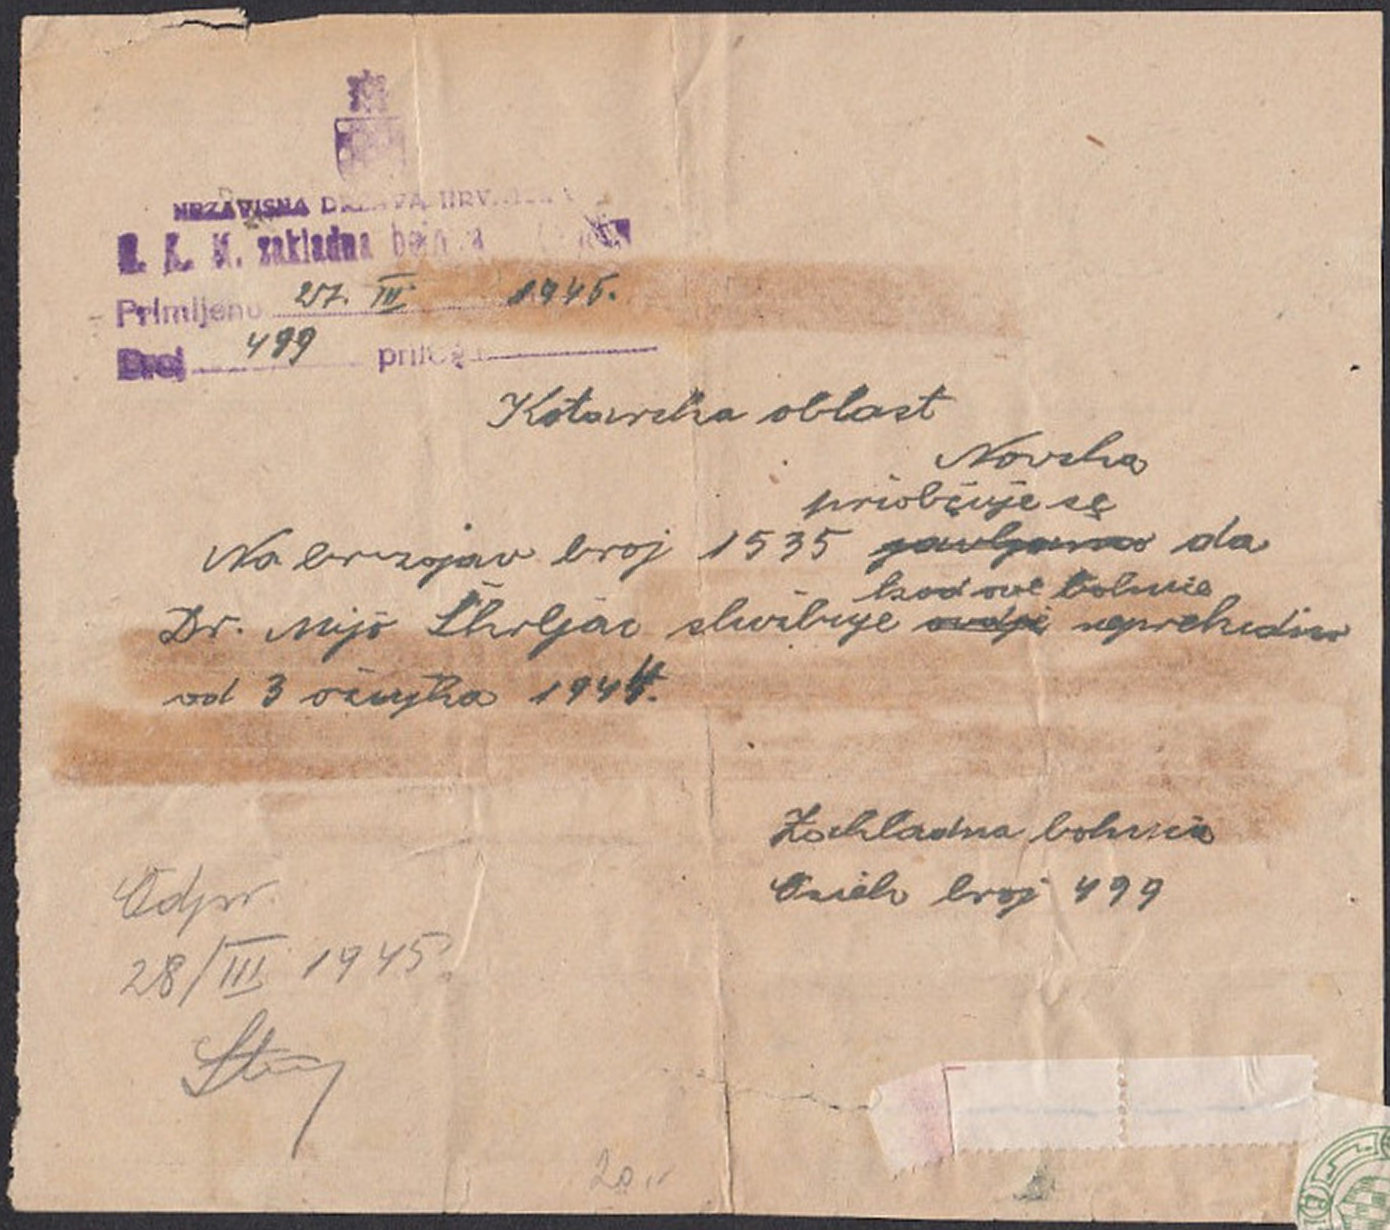 NEZAVISNA DRŽAVA HRV
zakladna bolnica
Primljeno 27. III 1945.
Broj 499 priloga
Kotarska oblast
Novska
priobčuje se
Na brzojav broj 1535 javljamo da
kod ove bolnice
Dr. Mijo Škrljac službuje ovdje neprekidno
od 3 ožujka 1944.
Zakladna bolnica
Osiek broj 499
Odpr.
28/III 1945.
20